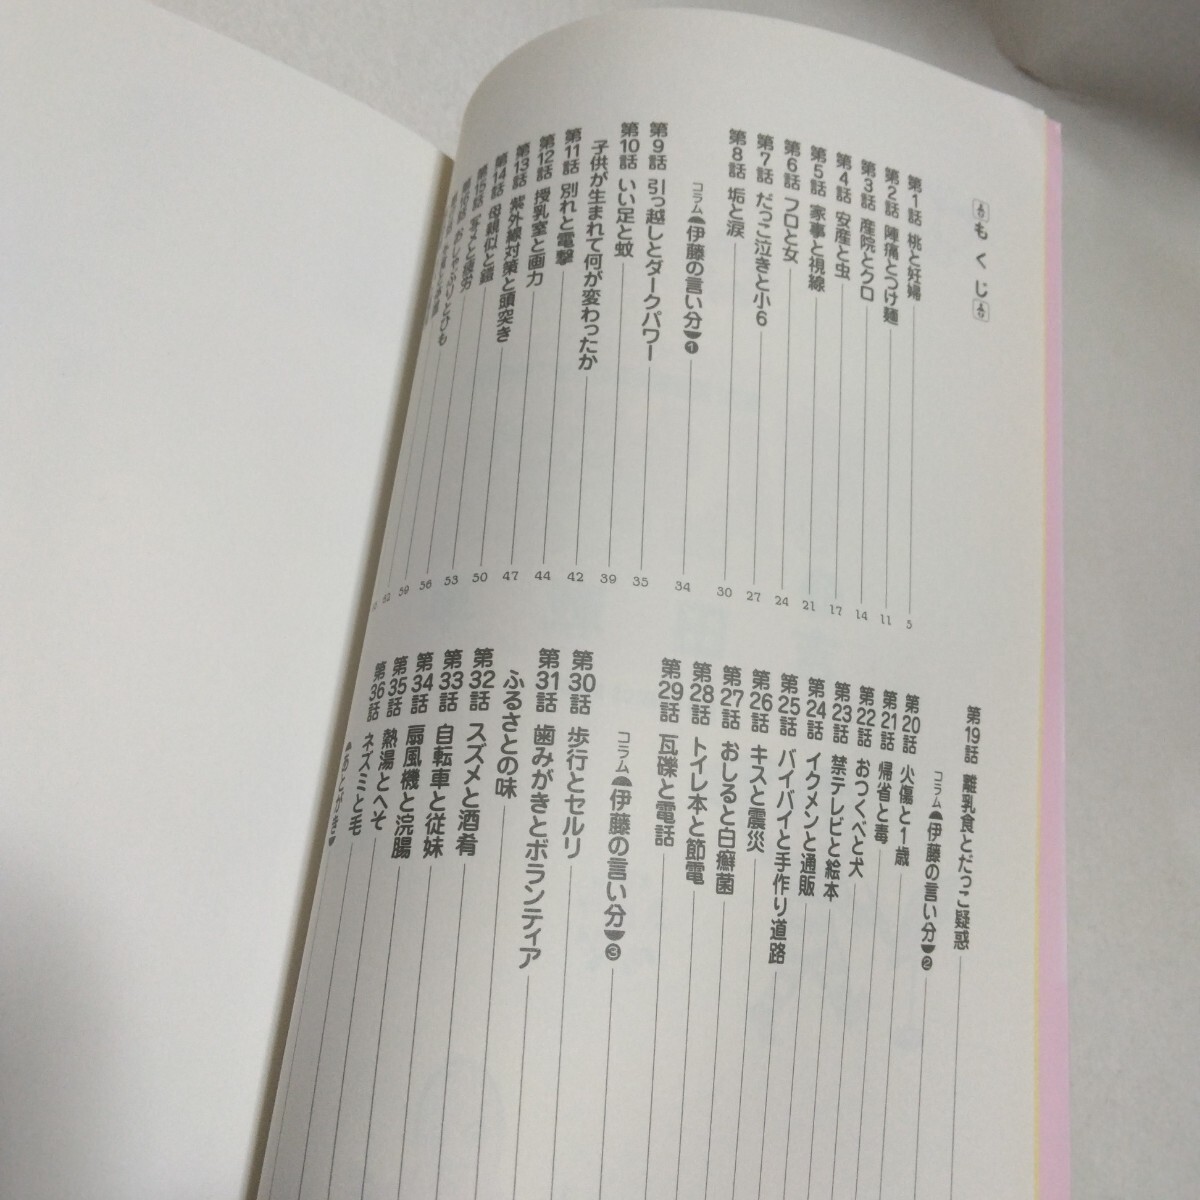 もくじ
第1話 桃と妊婦 5
第2話 陣痛とつけ麺 11
第3話 産院とクロ 14
第4話 安産と虫 17
第5話 家事と視線 21
第6話 フロと女 24
第7話 だっこ泣きと小6 27
第8話 垢と涙 30
コラム 伊藤の言い分 1 34
第9話 引っ越しとダークパワー 35
第10話 いい足と蚊 39
子供が生まれて何が変わったか 42
第11話 別れと電撃 44
第12話 授乳室と画力 47
第13話 紫外線対策と頭突き 50
第14話 母親似と鎧 53
第15話 ダメと疲労 56
おしゃぶりとひも 59
62
第19話 離乳食とだっこ疑惑
コラム 伊藤の言い分 2
第20話 火傷と1歳
第21話 帰省と毒
第22話 おつくべと犬
第23話 禁テレビと絵本
第24話 イクメンと通販
第25話 バイバイと手作り道路
第26話 キスと震災
第27話 おしると白癬菌
第28話 トイレ本と節電
第29話 瓦礫と電話
コラム 伊藤の言い分 3
第30話 歩行とセルリ
第31話 歯みがきとボランティア
ふるさとの味
第32話 スズメと酒肴
第33話 自転車と従妹
第34話 扇風機と浣腸
第35話 熱湯とへそ
第36話 ネズミと毛
あとがき